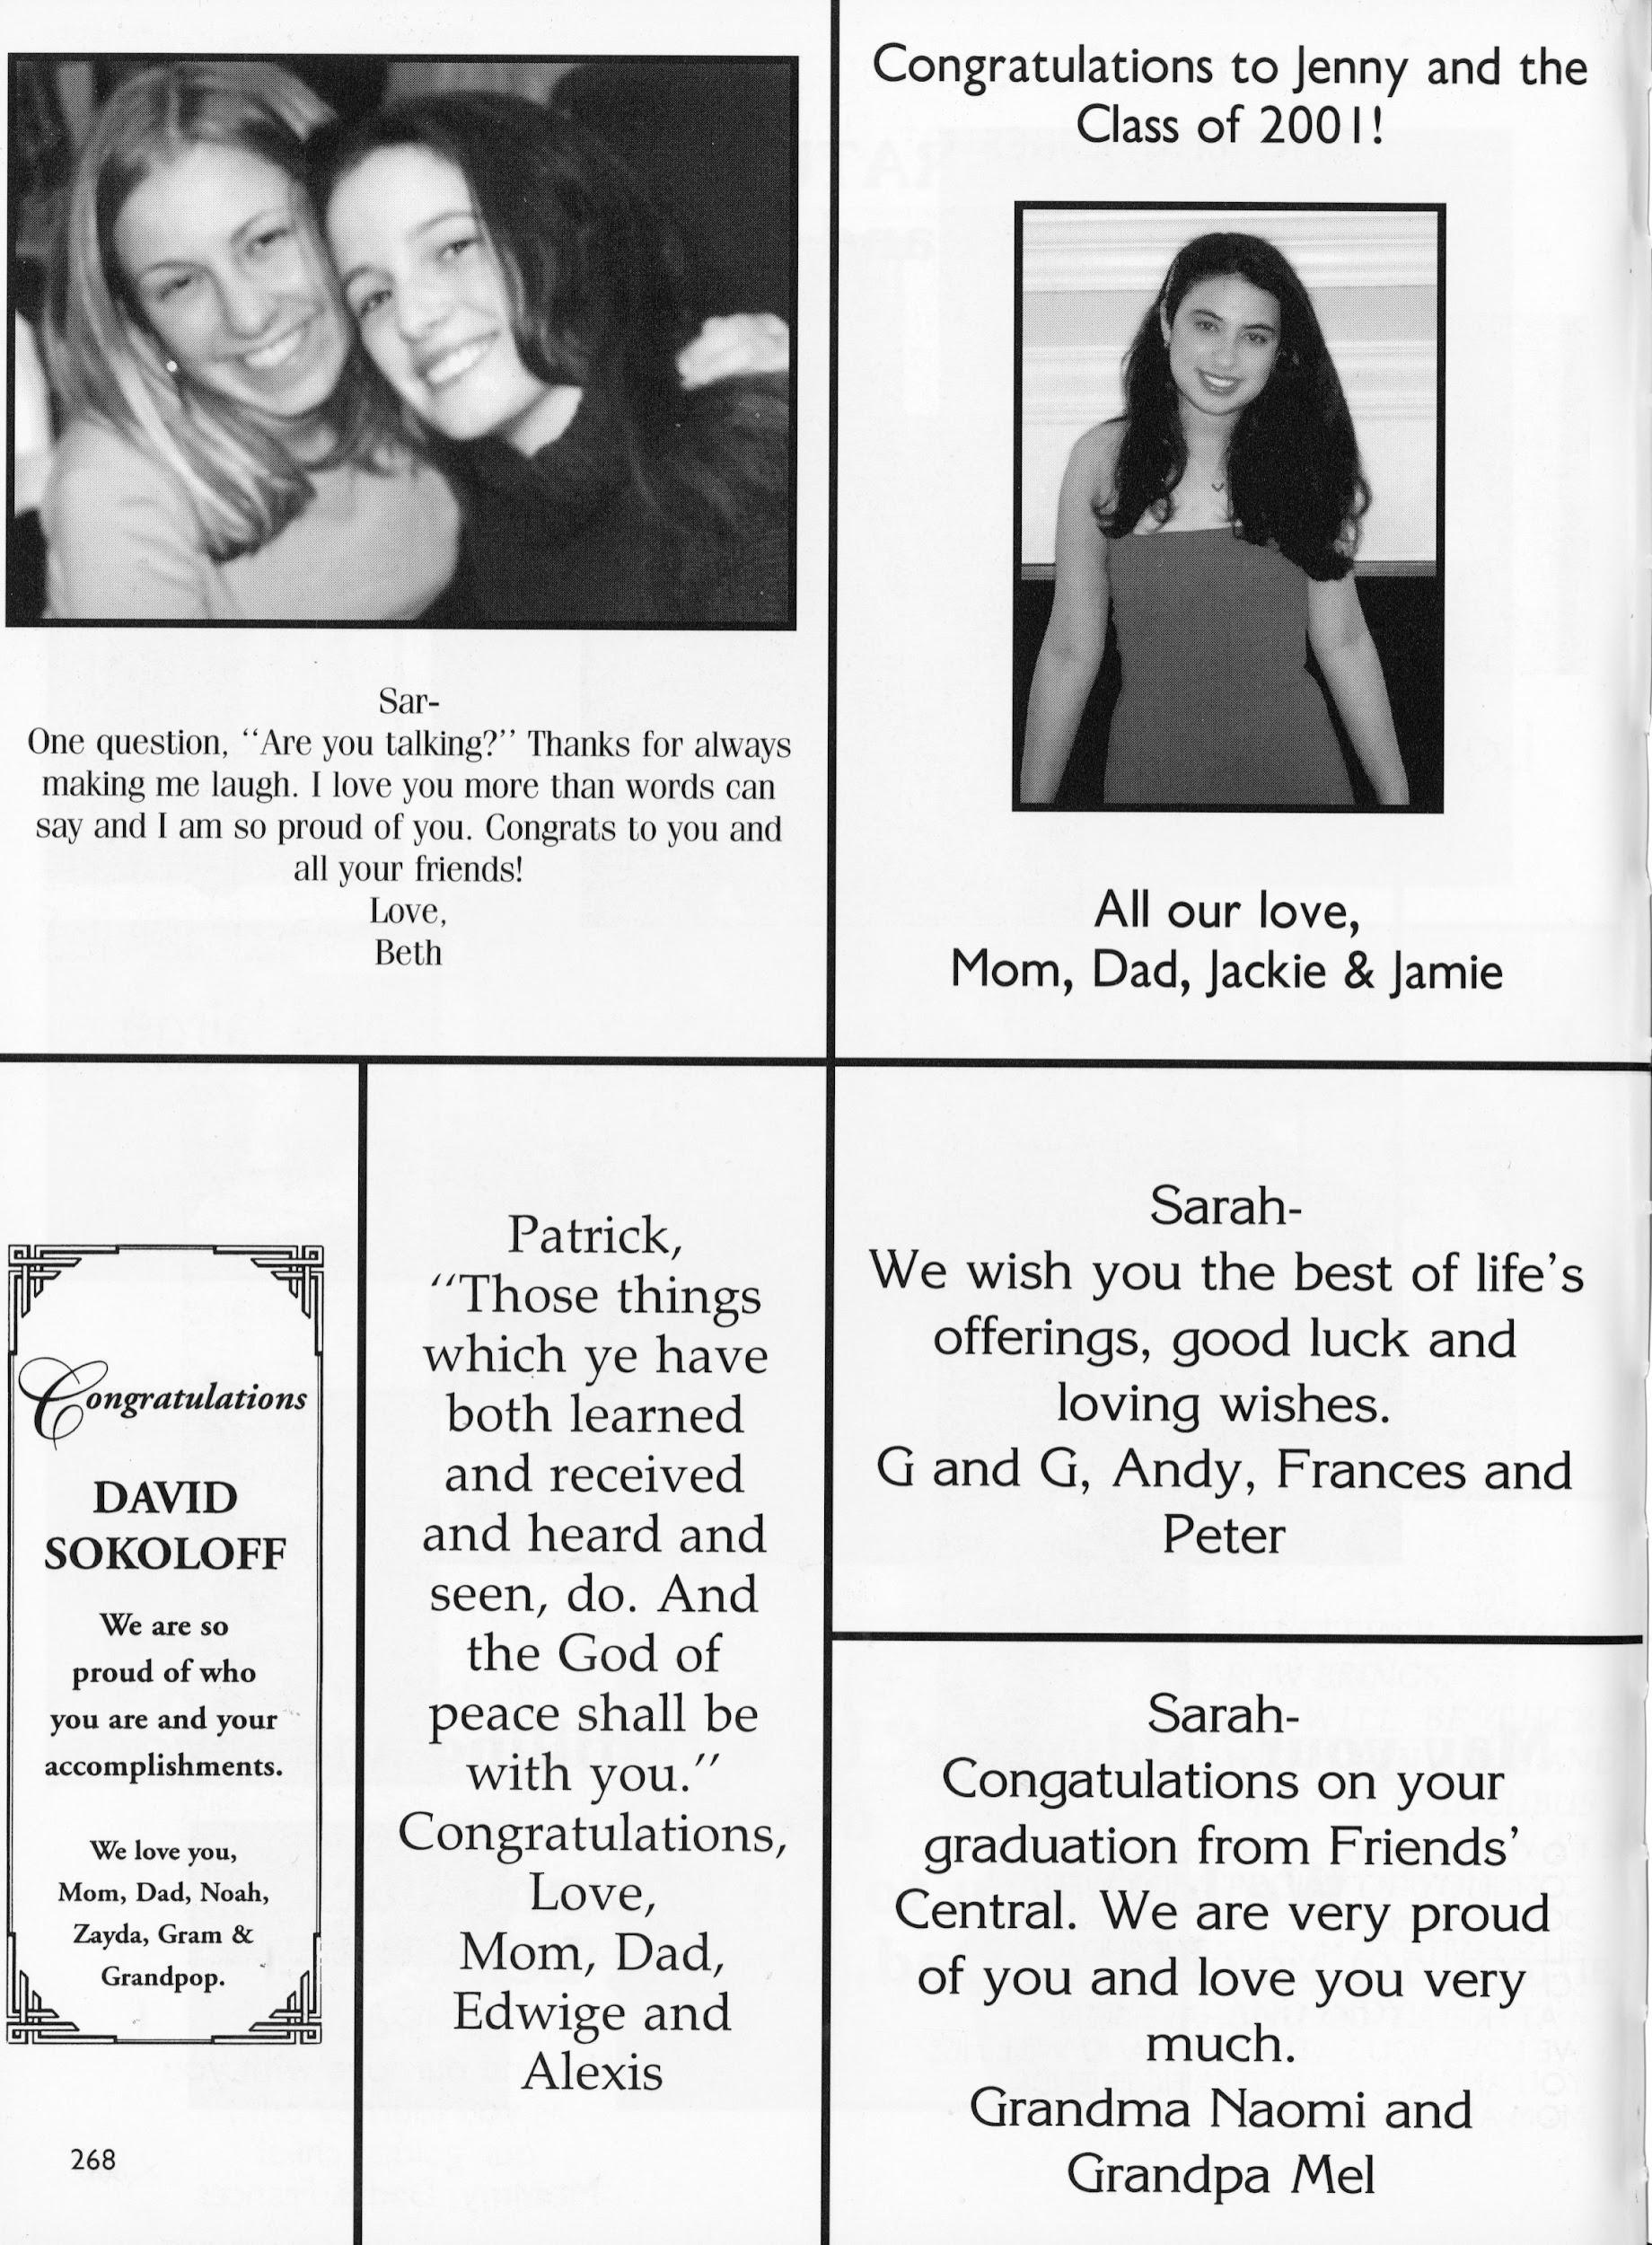 Sar-
One question, "Are you talking?" Thanks for always
making me laugh. I love you more than words can
say and I am so proud of you. Congrats to you and
all your friends!
Love,
Beth
Congratulations to Jenny and the
Class of 2001!
All our love,
Mom, Dad, Jackie & Jamie
Congratulations
DAVID
SOKOLOFF
We are so
proud of who
you are and your
accomplishments.
We love you,
Mom, Dad, Noah,
Zayda, Gram &
Grandpop.
Patrick,
"Those things
which ye have
both learned
and received
and heard and
seen, do. And
the God of
peace shall be
with you."
Congratulations,
Love,
Mom, Dad,
Edwige and
Alexis
Sarah-
We wish you the best of life's
offerings, good luck and
loving wishes.
G and G, Andy, Frances and
Peter
Sarah-
Congatulations on your
graduation from Friends'
Central. We are very proud
of you and love you very
much.
Grandma Naomi and
Grandpa Mel
268